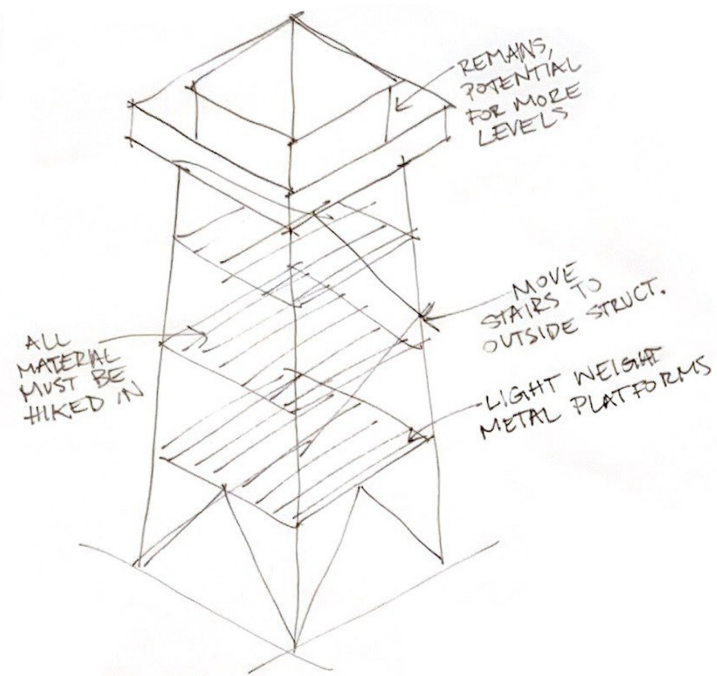 REMAINS,
POTENTIAL
FOR MORE
LEVELS
MOVE
STAIRS TO
OUTSIDE STRUCT.
ALL
MATERIAL
MUST BE
HIKED IN
LIGHT WEIGHT
METAL PLATFORMS